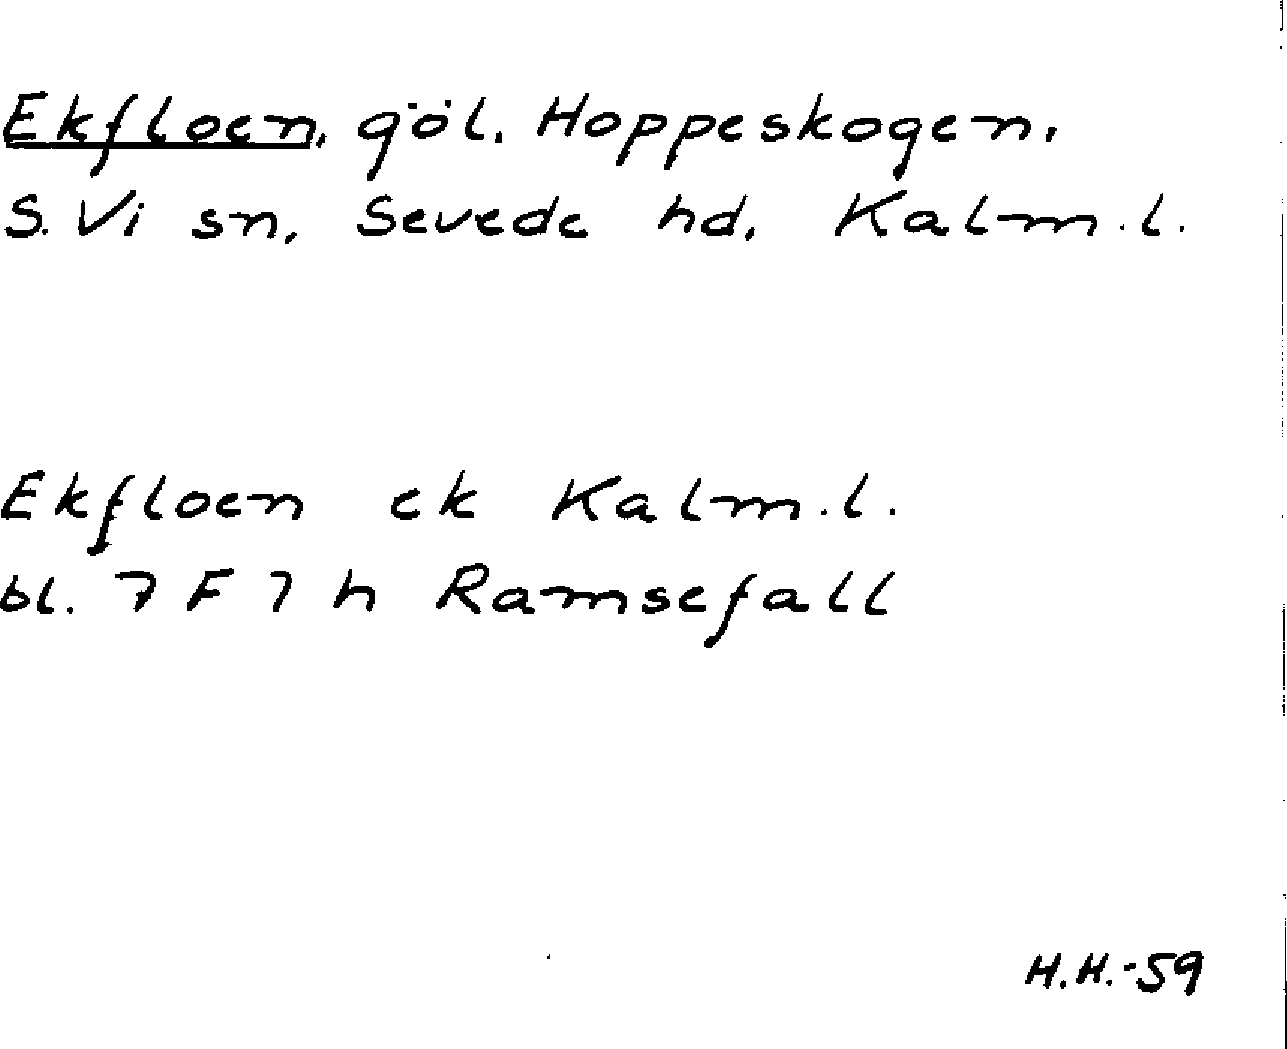 Ekfloen, göl, Hoppeskogen,
S. Vi sn, Sevede hd, Kalm.l.
Ekfloen ek Kalm.l.
bl. 7 F 7 h Ramsefall
H.H.-59